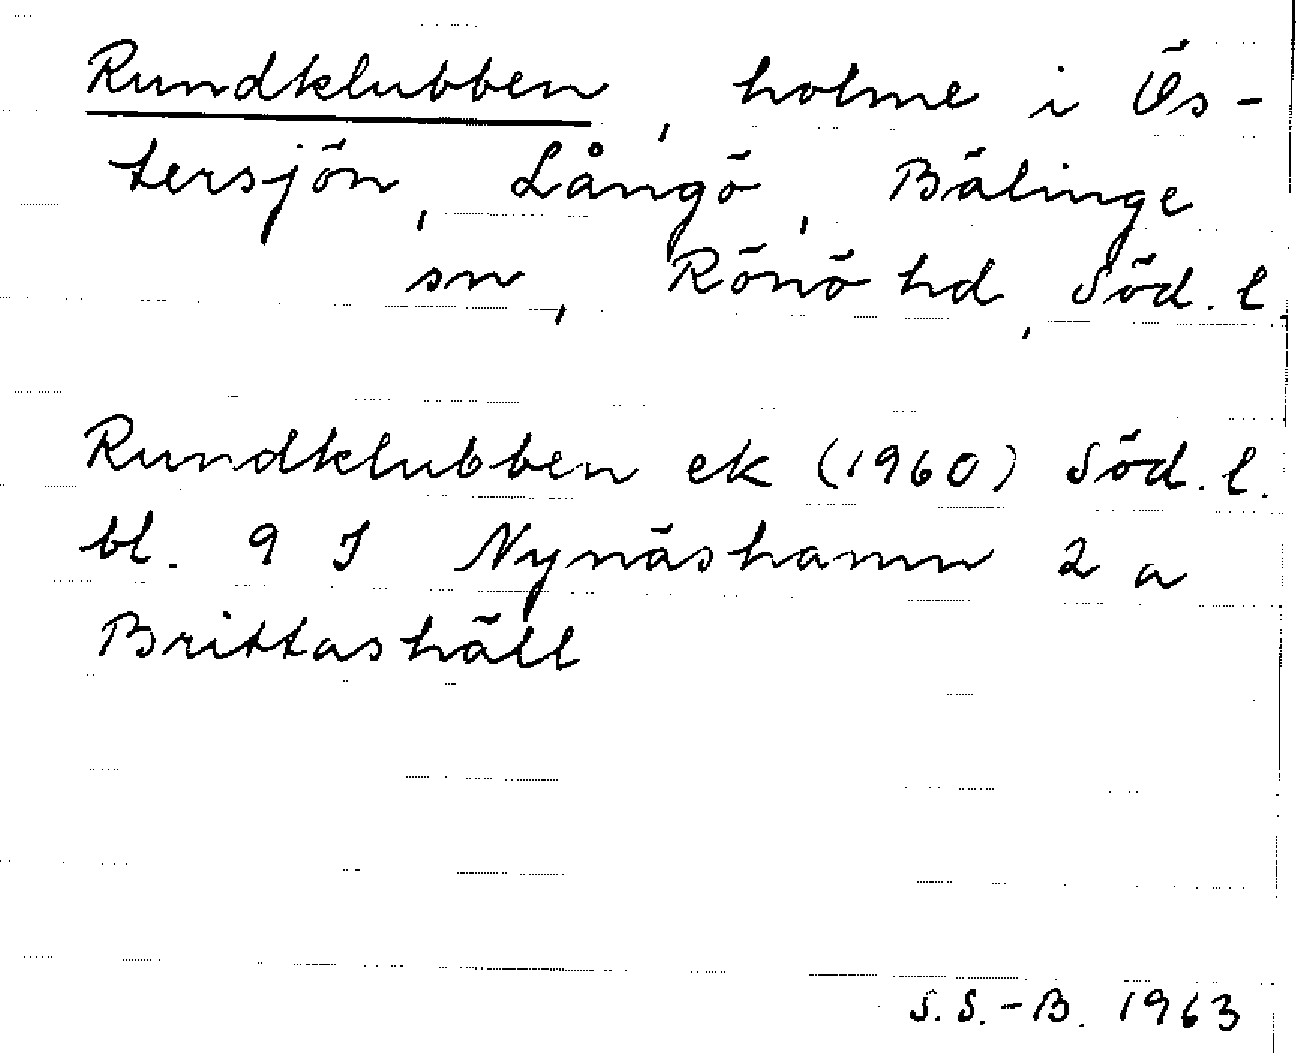 Rundklubben, holme i Ös-
tersjön, Långö, Bälinge
sn, Rönö hd, Söd. l.
Rundklubben ek (1960) Söd. l.
bl. 9 I Nynäshamn 2 a
Brittashäll
S.S.-B. 1963